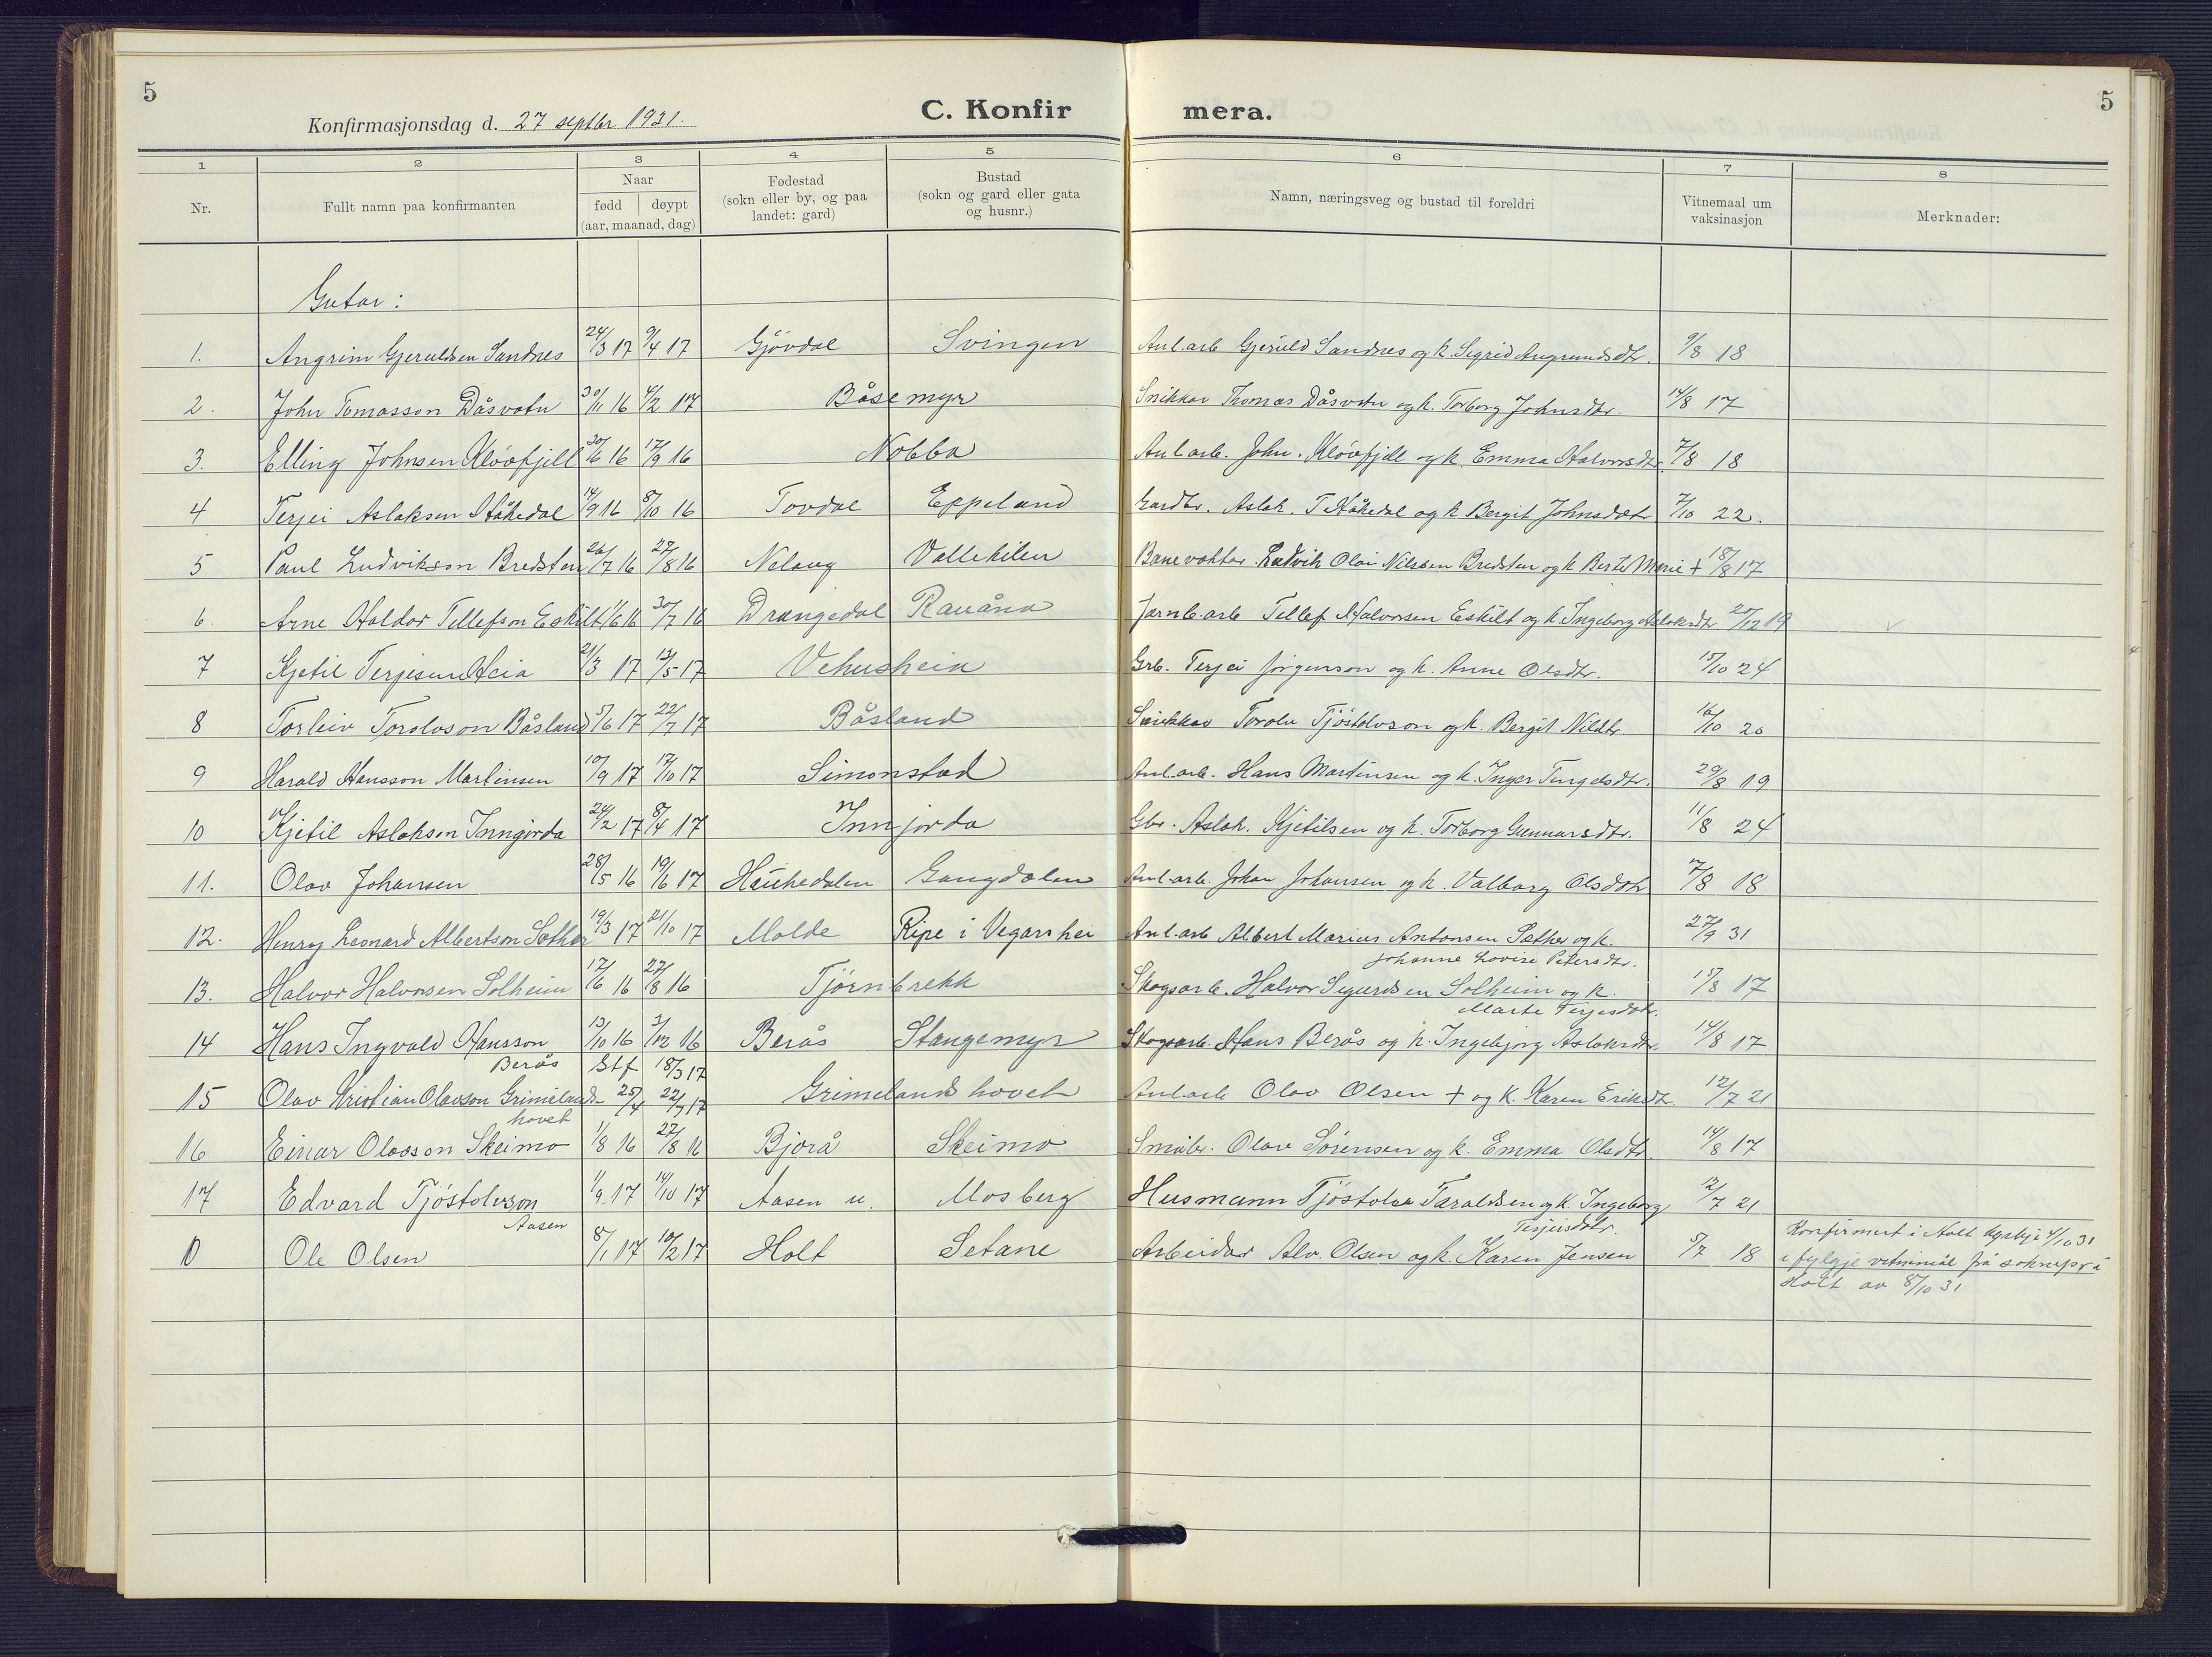 5
Konfirmasjonsdag d. 27 septbr 1931.
C. Konfir
mera.
5
1 2 3 4 5 6 7 8
Nr.
Fullt namn paa konfirmanten
Naar
fødd døypt
(aar, maanad, dag)
Fødestad
(sokn eller by, og paa
landet: gard)
Bustad
(sokn og gard eller gata
og husnr.)
Namn, næringsveg og bustad til foreldri
Vitnemaal um
vaksinasjon
Merknader:
Gutar:
1. Angrim Gjeruldsen Sandnes 24/3 17 9/4 17 Gjövdal Svingen Anl.arb Gjeruld Sandnes og k. Sigrid Angrimsdtr. 9/8 18
2. John Tomasson Dåsvatn 30/11 16 4/2 17 Båsemyr Snikkar Thomas Dåsvatn og k. Torborg Johnsdtr. 14/8 17
3. Elling Johnsen Klövfjell 30/6 16 17/9 16 Nobba Anl.arb. John. Klövfjell og k. Emma Halvorsdtr. 7/8 18
4 Terjei Aslaksen Håkedal 14/9 16 8/10 16 Tovdal Eppeland Gardbr. Aslak. T Håkedal og k Bergit Johnsdotr 7/10 22.
5 Paul Ludvikson Bredsten 26/7 16 27/8 16 Nelaug Vallekilen Banevaktar Ludvik Olai Nilssen Bredsten og k Berte Marie + 18/8 17
6. Arne Haldor Tellefson Eskilt 1/6 16 30/7 16 Drangedal Rauåna Jarnb.arb Tellef Halvorsen Eskilt og k. Ingeborg Aslaksdtr 20/12 19
7 Kjetil Terjesen Heia 21/3 17 13/5 17 Vehusheia Grb. Terjei Jörgenson og k. Anne Olsdtr. 15/10 24
8 Torleiv Torolvson Båsland 5/6 17 22/7 17 Båsland Snikkar Torolv Tjöstolvson og k. Bergit Nilsdtr. 16/10 20
9 Harald Hansson Martinsen 10/9 17 17/10 17 Simonstad Anl.arb. Hans Martinsen og k. Inger Tengelsdtr. 29/8 19
10 Kjetil Aslakson Inngjorda 24/2 17 8/4 17 Innjorda Gbr. Aslak. Kjetilsen og k. Torborg Gunnarsdtr. 11/8 24
11. Olav Johansen 28/5 16 19/6 17 Hauhedalen Gangdalen Anl.arb. Johan Johansen og k. Valborg Olsdotr 7/8 18
12. Henry Leonard Albertson Sæther 19/3 17 21/10 17 Molde Ripe i Vegarshei Anl.arb Albert Marius Antonsen Sæther og k. 27/9 31
Johanne Lovise Petersdtr.
13. Halvor Halvorsen Solheim 17/6 16 27/8 16 Tjörnbrekk Skogsarb. Halvor Sigurdsen Solheim og k. 15/8 17
Marte Terjesdotr.
14 Hans Ingvald Hansson 13/10 16 3/12 16 Berås Stangemyr Skogsarb. Hans Berås og k. Ingebjörg Aslaksdtr. 14/8 17
Berås Stf. 18/3 17
15 Olav Kristian Olavson Grimelands 25/4 22/7 17 Grimelandshovet Anl.arb Olav Olsen + og k. Karen Eriksdtr. 12/7 21
hovet
16 Einar Olavson Skeimo 1/8 16 27/8 16 Bjorå Skeimo Småbr. Olav Sörensen og k. Emma Olsdtr. 14/8 17
17 Edvard Tjöstolvson 1/9 17 14/10 17 Aasen u. Mosberg Husmann Tjöstolv Taraldsen og k. Ingeborg 12/7 21
Aasen Terjeisdotr.
0 Ole Olsen 8/1 17 10/2 17 Holt Setane Arbeidar Alv. Olsen og k. Karen Jensen 5/7 18 Konfirmert i Holt kyrkje 4/10 31
i fylgje vitnemål frå soknepr i
Holt av 8/10 31